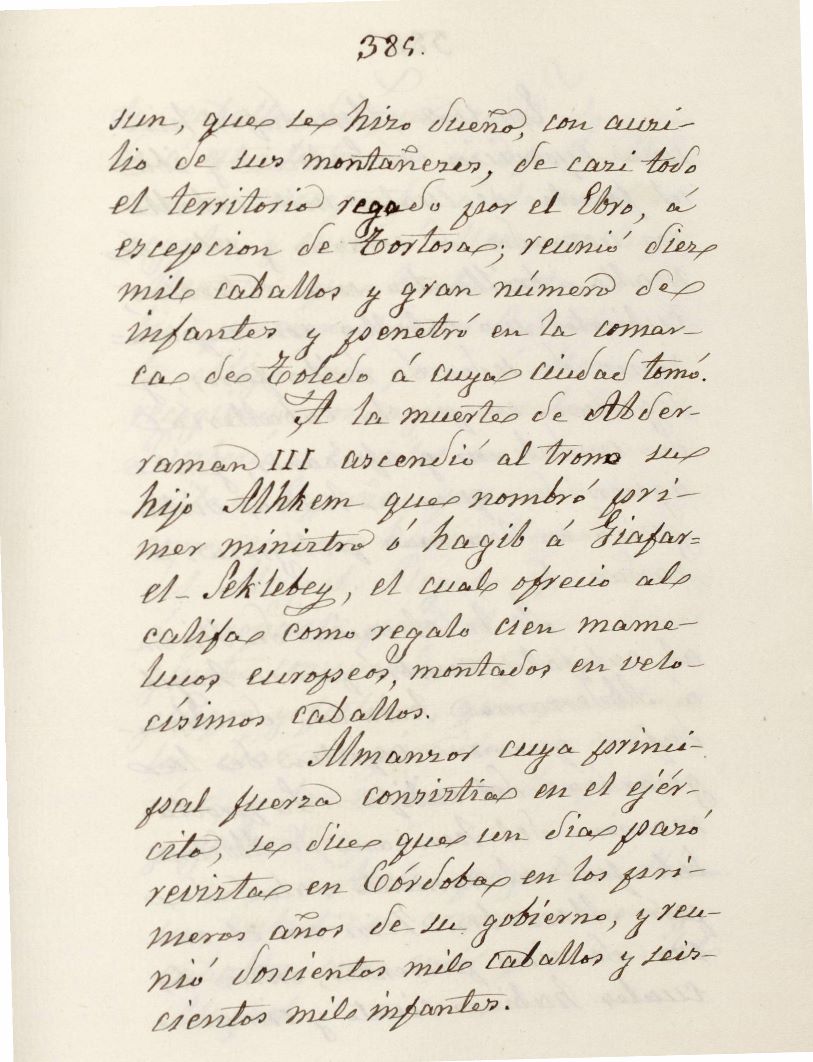 385.
sun, que se hizo dueño, con auxi-
lio de sus montañeses, de casi todo
el territorio regado por el Ebro, á
escepcion de Tortosa; reunió diez
mil caballos y gran número de
infantes y penetró en la comar-
ca de Toledo á cuya ciudad tomó.
A la muerte de Abder-
raman III ascendió al trono su
hijo Alhkem que nombró pri-
mer ministro ó hagib á Giafar=
el-Seklebey, el cual ofrecio al
califa como regalo cien mame-
lucos europeos, montados en velo-
císimos caballos.
Almanzor cuya princi-
pal fuerza consistia en el ejér-
cito, se dice que un dia pasó
revista en Córdoba en los pri-
meros años de su gobierno, y reu-
nió doscientos mil caballos y seis-
cientos mil infantes.